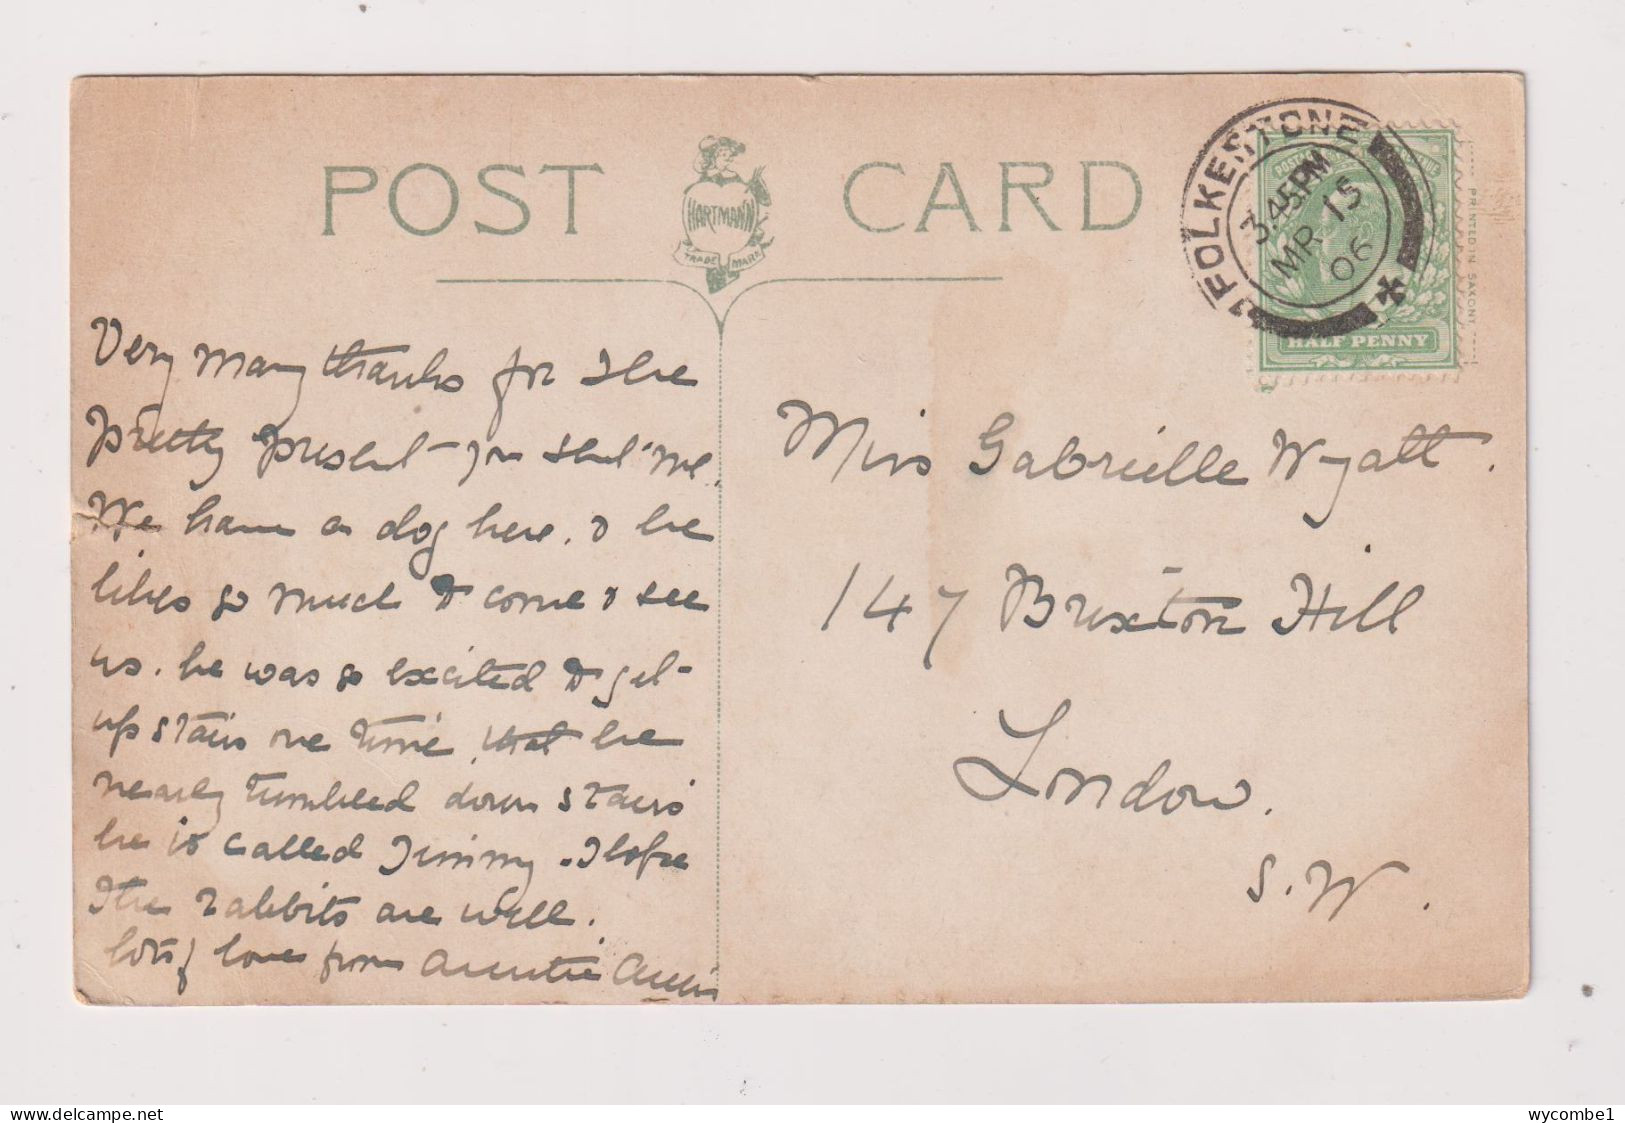 POST CARD
HARTMANN
TRADE MARK
FOLKESTONE
3.45PM
MR 15
06
HALF PENNY
PRINTED IN SAXONY
Very many thanks for the
pretty present you sent me.
We have a dog here, & he
likes so much to come & see
us. he was so excited to get
upstairs one time, that he
nearly tumbled down stairs
he is called Jimmy. I hope
the rabbits are well.
lots of love from auntie
Miss Gabrielle Wyatt.
147 Brixton Hill
London.
S.W.
wycombe1